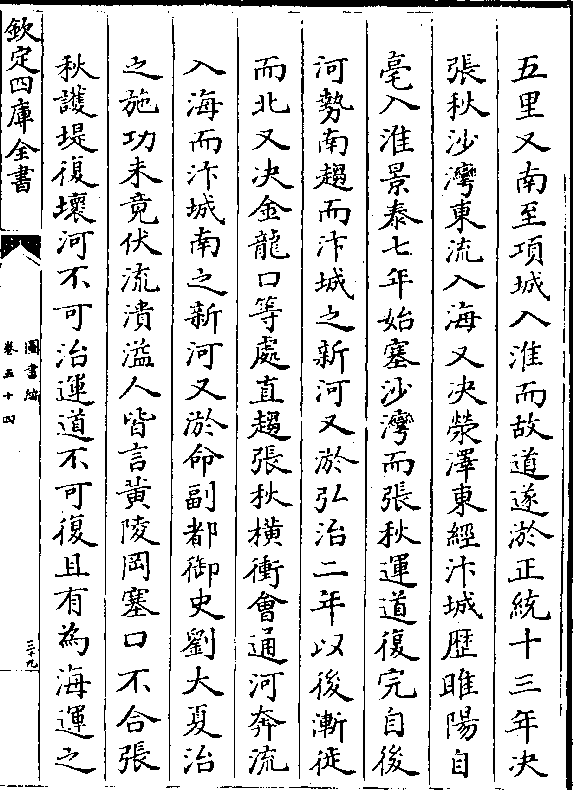 五里又南至項城入淮而故道遂淤正統十三年决
張秋沙灣東流入海又决滎澤東經汴城歴睢陽自
亳入淮景泰七年始塞沙灣而張秋運道復完自後
河勢南趨而汴城之新河又淤弘治二年以後漸徙
而北又决金龍口等處直趨張秋横衝會通河奔流
入海而汴城南之新河又淤命副都御史劉大夏治
之施功未竟伏流潰溢人皆言黄陵岡塞口不合張
秋護堤復壞河不可治運道不可復且有為海運之
欽定四庫全書
圖書編
卷五十四
三十九